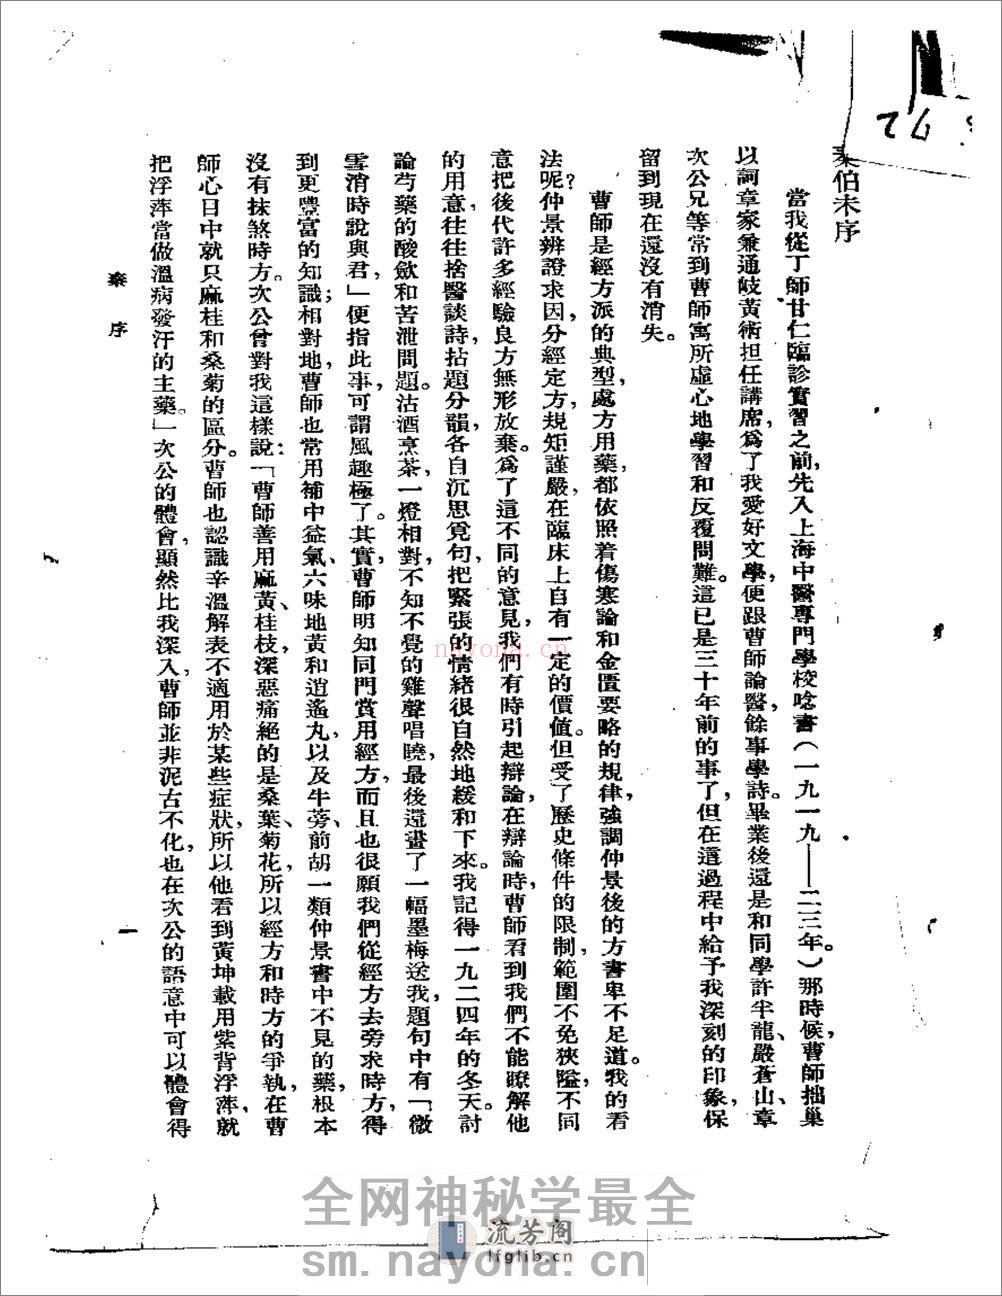 秦伯未序
當我從丁師甘仁臨診實習之前，先入上海中醫專門學校唸書（一九一九——二三年。）那時候，曹師拙巢
以詞章家兼通岐黃術担任講席，爲了我愛好文學，便跟曹師論醫，餘事學詩。畢業後還是和同學許半龍、嚴蒼山、章
次公兄等常到曹師寓所虛心地學習和反覆問難。這已是三十年前的事了，但在這過程中給予我深刻的印象，保
留到現在還沒有消失。
曹師是經方派的典型，處方用藥，都依照着傷寒論和金匱要略的規律，強調仲景後的方書卑不足道。我的看
法呢？仲景辨證求因，分經定方，規矩謹嚴，在臨床上自有一定的價值。但受了歷史條件的限制，範圍不免狹隘，不同
意把後代許多經驗良方無形放棄。爲了這不同的意見，我們有時引起辯論，在辯論時，曹師看到我們不能瞭解他
的用意，往往捨醫談詩，拈題分韻，各自沉思覓句，把緊張的情緒很自然地緩和下來。我記得一九二四年的冬天討
論芍藥的酸斂和苦泄問題。沽酒烹茶，一燈相對，不知不覺的雞聲唱曉，最後還畫了一幅墨梅送我，題句中有「微
雪消時說與君，」便指此事，可謂風趣極了。其實，曹師明知同門賞用經方，而且也很願我們從經方去旁求時方，得
到更豐富的知識；相對地，曹師也常用補中益氣、六味地黃和逍遙丸，以及牛蒡、前胡一類仲景書中不見的藥，根本
沒有抹煞時方。次公曾對我這樣說：「曹師善用麻黃、桂枝，深惡痛絕的是桑葉、菊花，所以經方和時方的爭執，在曹
師心目中就只麻桂和桑菊的區分。曹師也認識辛溫解表不適用於某些症狀，所以他看到黃坤載用紫背浮萍，就
把浮萍當做溫病發汗的主藥。」次公的體會，顯然比我深入，曹師並非泥古不化，也在次公的語意中可以體會得
秦 序
一
nayona.cn
全网神秘学最全
流芳阁
lfglib.cn
sm.nayona.cn